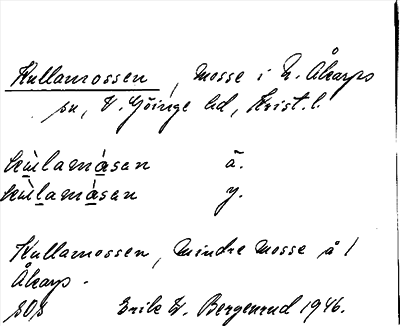 Kullamossen, mosse i N. Åkarps
sn, V. Göinge hd, Krist. l.
kùlamåsen ä.
kùlamåsen y.
Kullamossen, mindre mosse å 1
Åkarp.
Erik W. Bergenrud 1946.